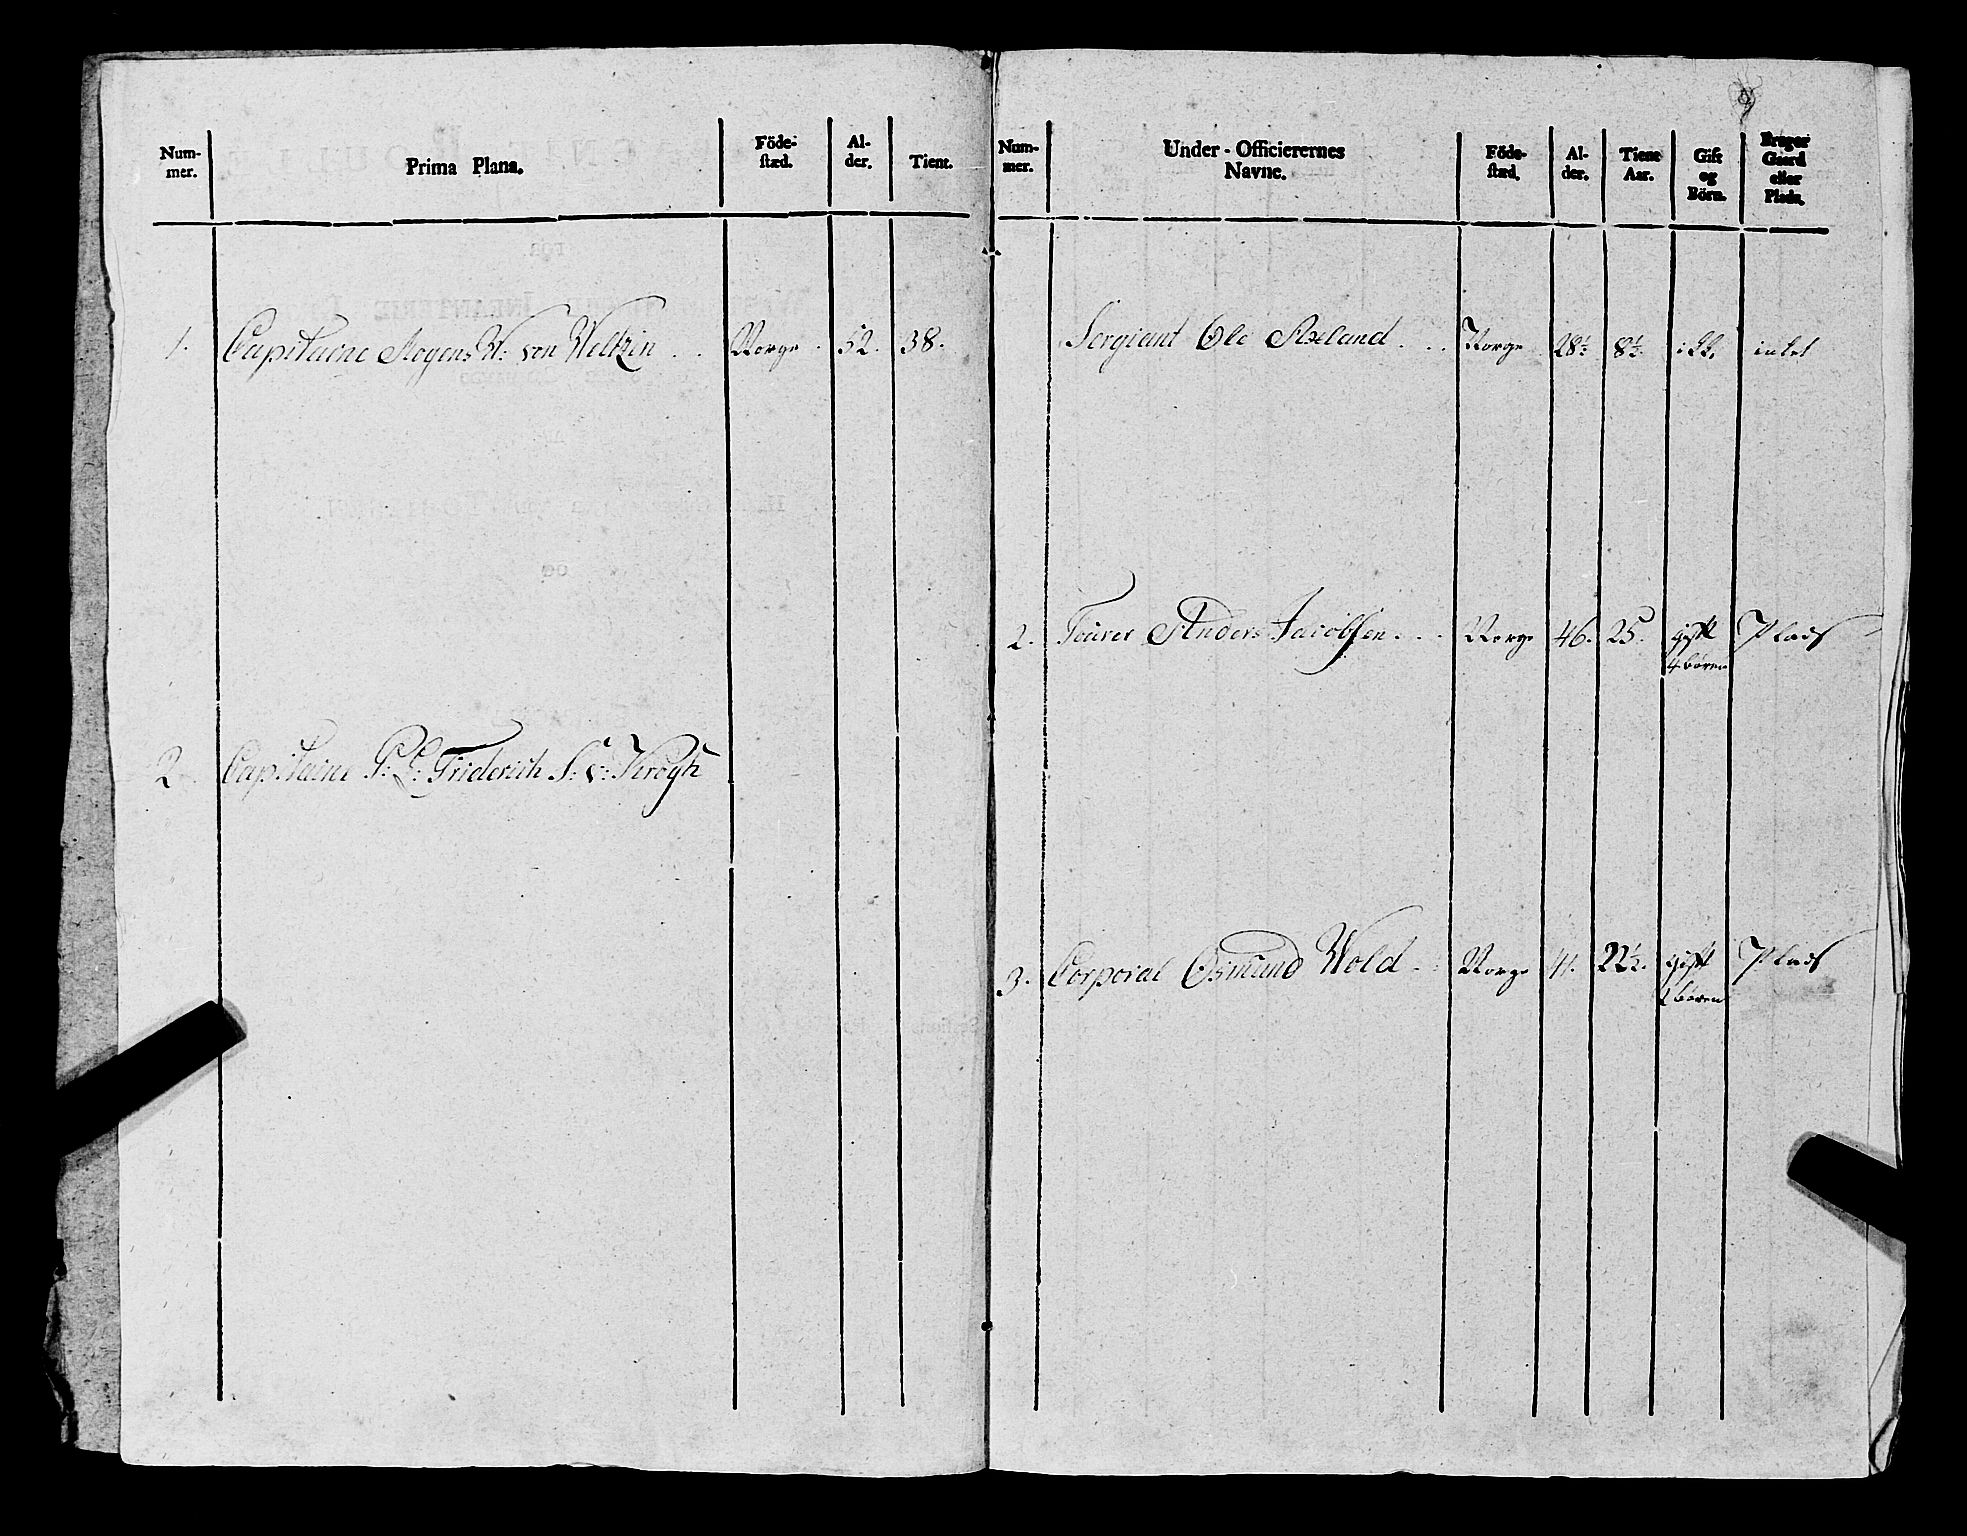 Num-
mer.
Prima Plana.
Föde-
stæd.
Al-
der.
Tient.
1. Capitaine Mogens W: von Weltzin . . Norge . 52. 38.
2. Capitaine P: C: Friderich S: v: Krogh
Num-
mer.
Under-Officierernes
Navne.
Föde-
stæd.
Al-
der.
Tient
Aar.
Gift
og
Börn.
Bruger
Gaard
eller
Plads.
Sergiant Ole Axeland . . . Norge 28½ 8½ ikk, intet
2. Fourer Anders Jacobsen . . . Norge 46. 25. gift Plads
4 børen
3. Corporal Osmund Wold . . Norge 41. 22½. gift Plads
2 børen